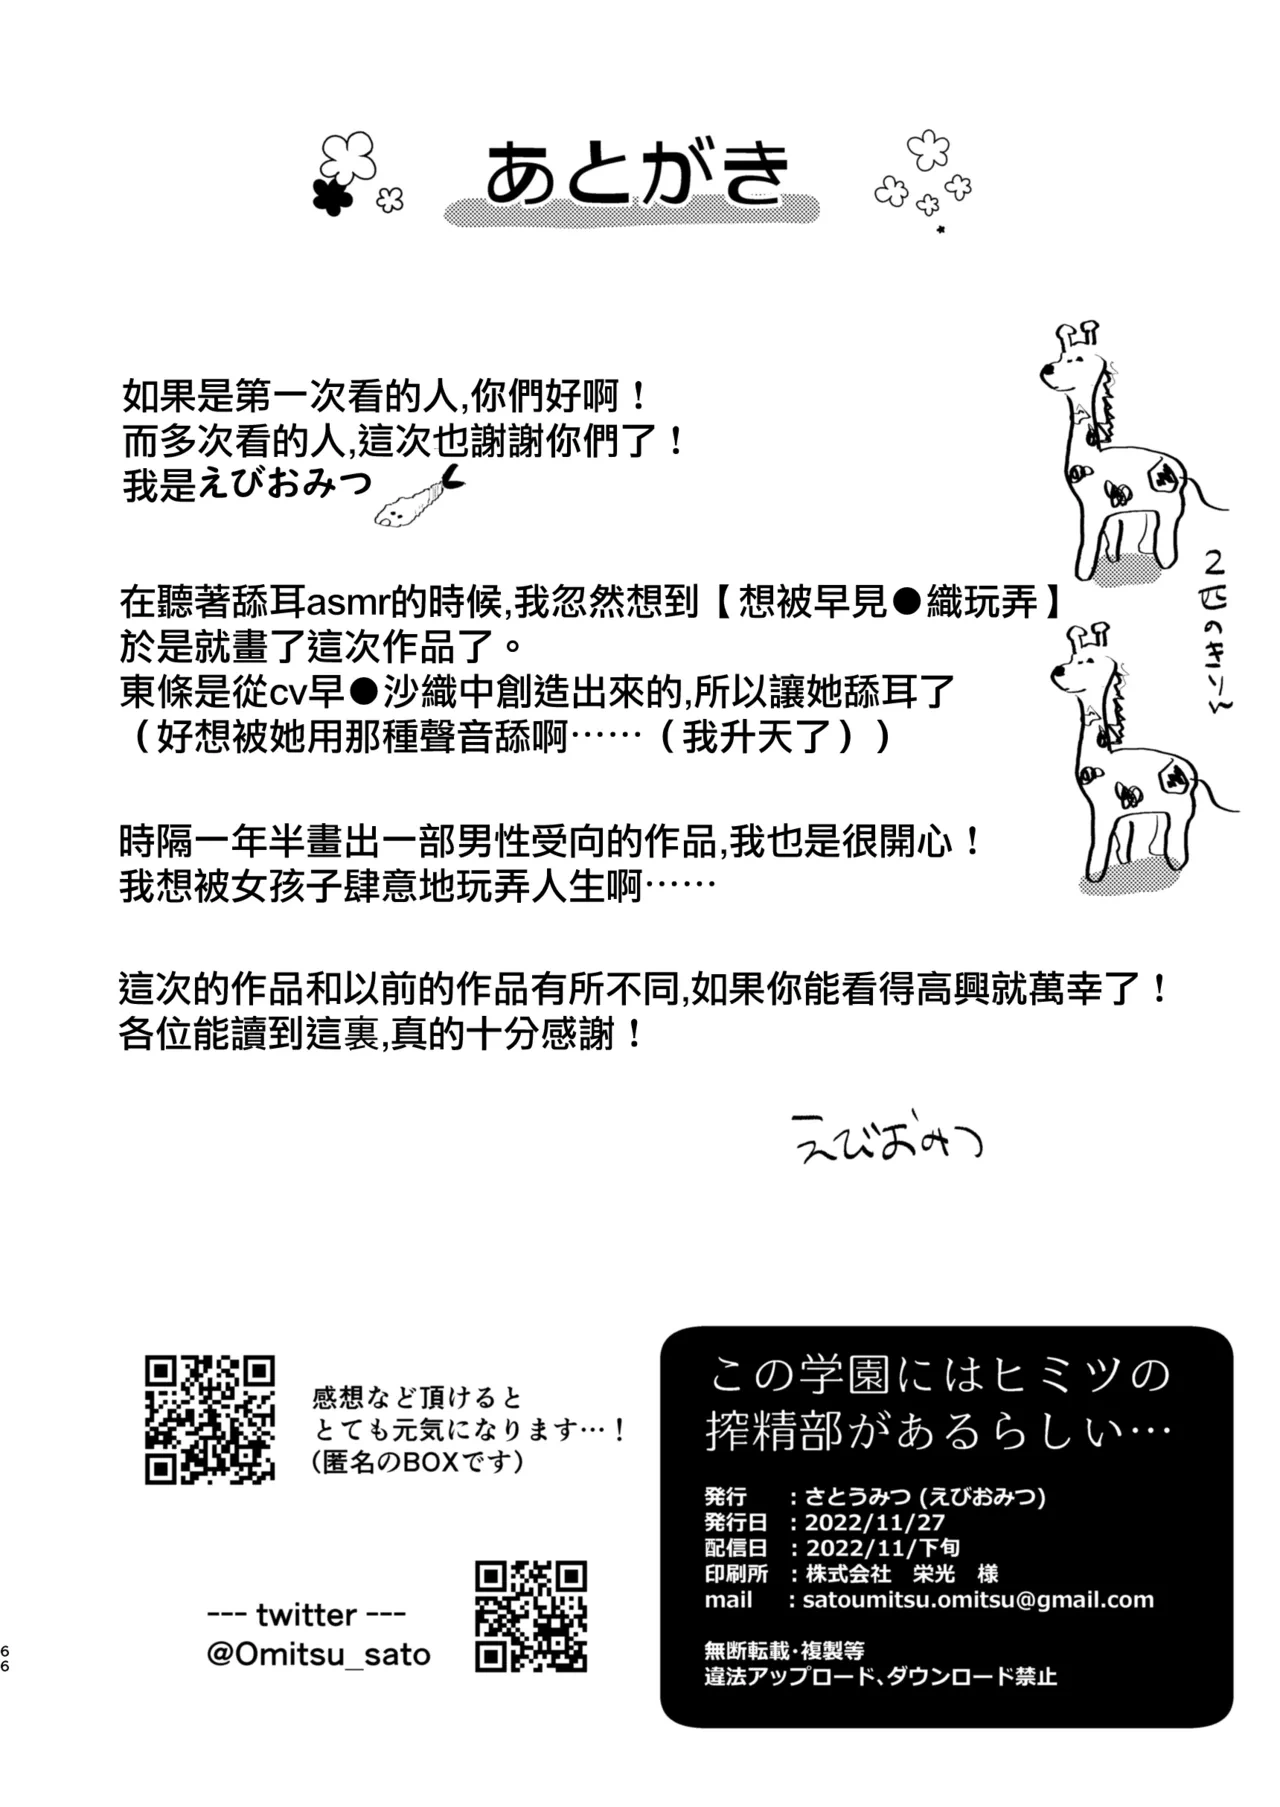 あとがき
如果是第一次看的人,你們好啊！
而多次看的人,這次也謝謝你們了！
我是えびおみつ
在聽著舔耳asmr的時候,我忽然想到【想被早見●織玩弄】
於是就畫了這次作品了。
東條是從cv早●沙織中創造出來的,所以讓她舔耳了
（好想被她用那種聲音舔啊……（我升天了））
2匹のきりん
時隔一年半畫出一部男性受向的作品,我也是很開心！
我想被女孩子肆意地玩弄人生啊……
這次的作品和以前的作品有所不同,如果你能看得高興就萬幸了！
各位能讀到這裏,真的十分感謝！
えびおみつ
感想など頂けると
とても元気になります…！
(匿名のBOXです)
--- twitter ---
@Omitsu_sato
この学園にはヒミツの
搾精部があるらしい…
発行　：さとうみつ (えびおみつ)
発行日　：2022/11/27
配信日　：2022/11/下旬
印刷所　：株式会社　栄光　様
mail　：satoumitsu.omitsu@gmail.com
無断転載・複製等
違法アップロード、ダウンロード禁止
66